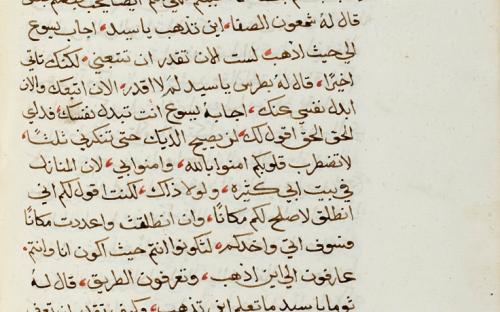 قال له شمعون الصفا، اين تذهب يا سيد، اجاب يسوع
الى حيث اذهب لست الان تقدر ان تتبعني، لكنك تاتي
اخيرًا، قال له بطرس يا سيد لم لا اقدر الان اتبعك والان
ابدل نفسي عنك، اجابه يسوع انت تبدل نفسك فدائي
الحق الحق اقول لك، لن يصيح الديك حتى تنكرني ثلثًا،
لا تضطرب قلوبكم امنوا بالله، وامنوا بي، لان المنازل
في بيت ابي كثيرة، ولولا ذلك، لكنت اقول لكم اني
انطلق لاصلح لكم مكانًا، وان انطلقت واعددت مكانًا
فسوف اتي واخذكم، لتكونوا انتم حيث اكون انا وانتم
عارفون الى اين اذهب، وتعرفون الطريق، قال له
توما يا سيد ما نعلم اين تذهب، وكيف نقدر ان نعرف